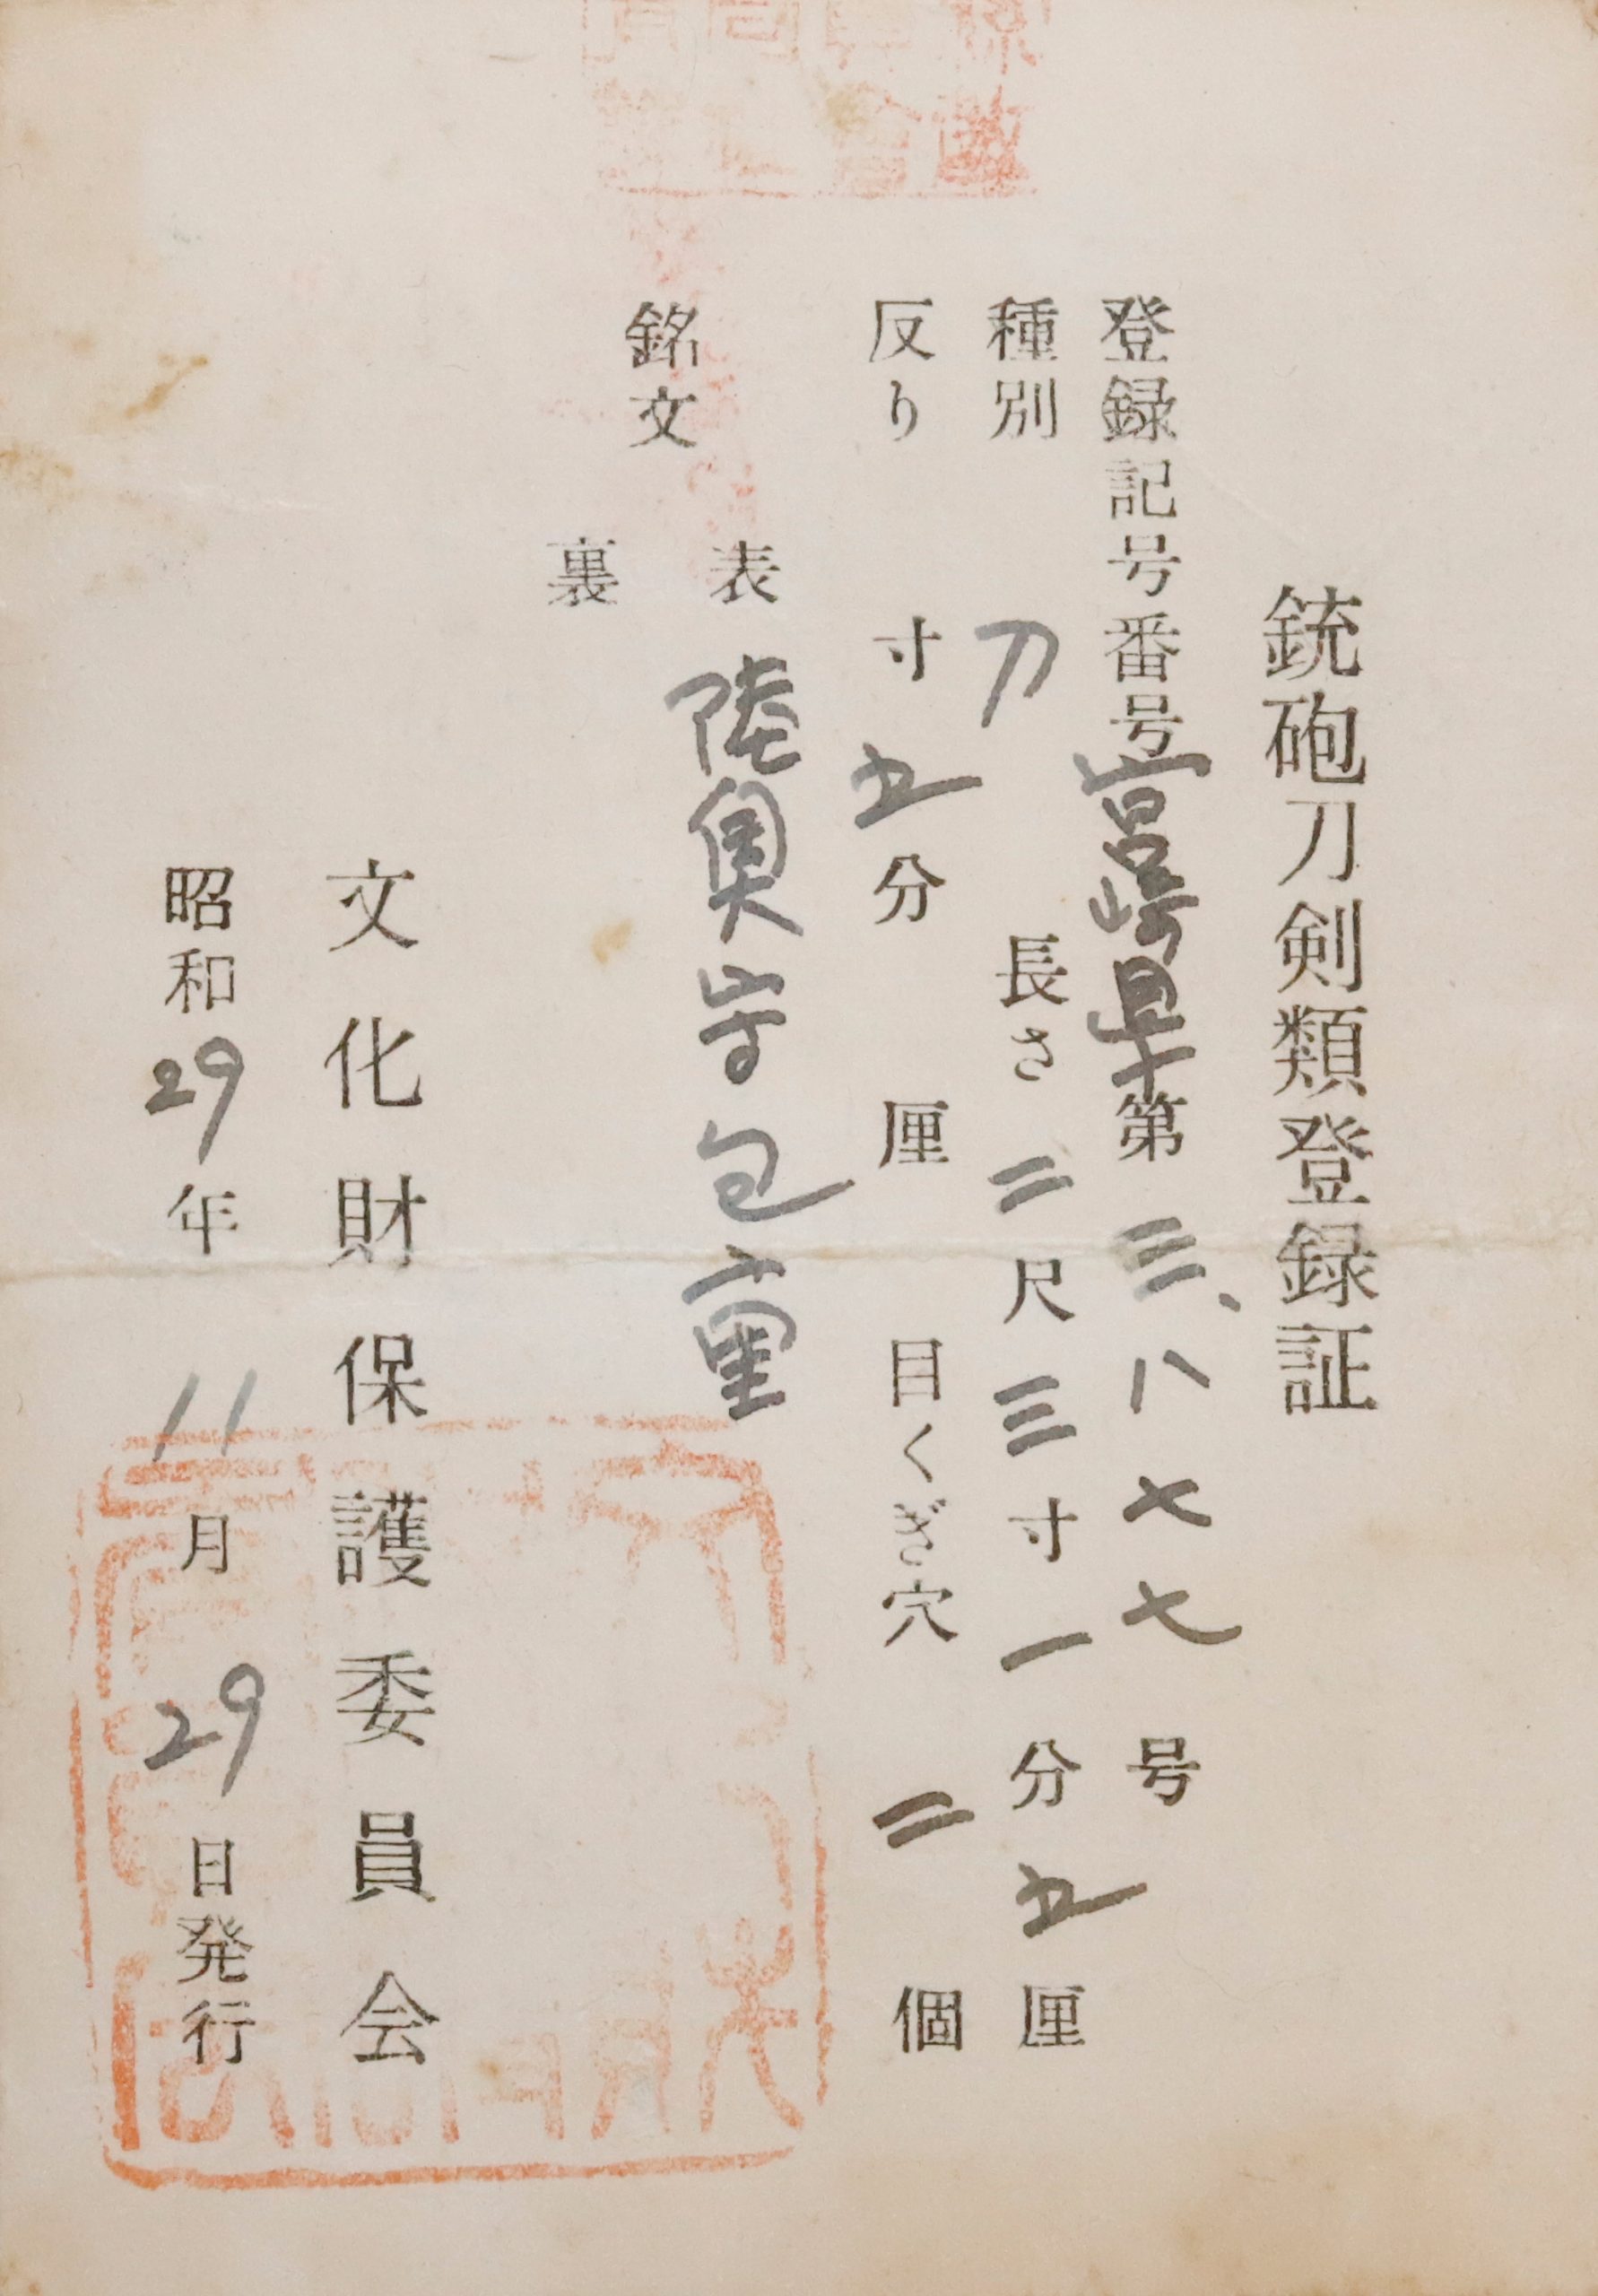 銃砲刀剣類登録証
登録記号番号宮崎県第三、八七七号
種別 刀 長さ 二尺三寸一分五厘
反り 寸五分 厘 目くぎ穴 二個
銘文
表 陸奥守包重
裏
文化財保護委員会
昭和29年11月29日発行